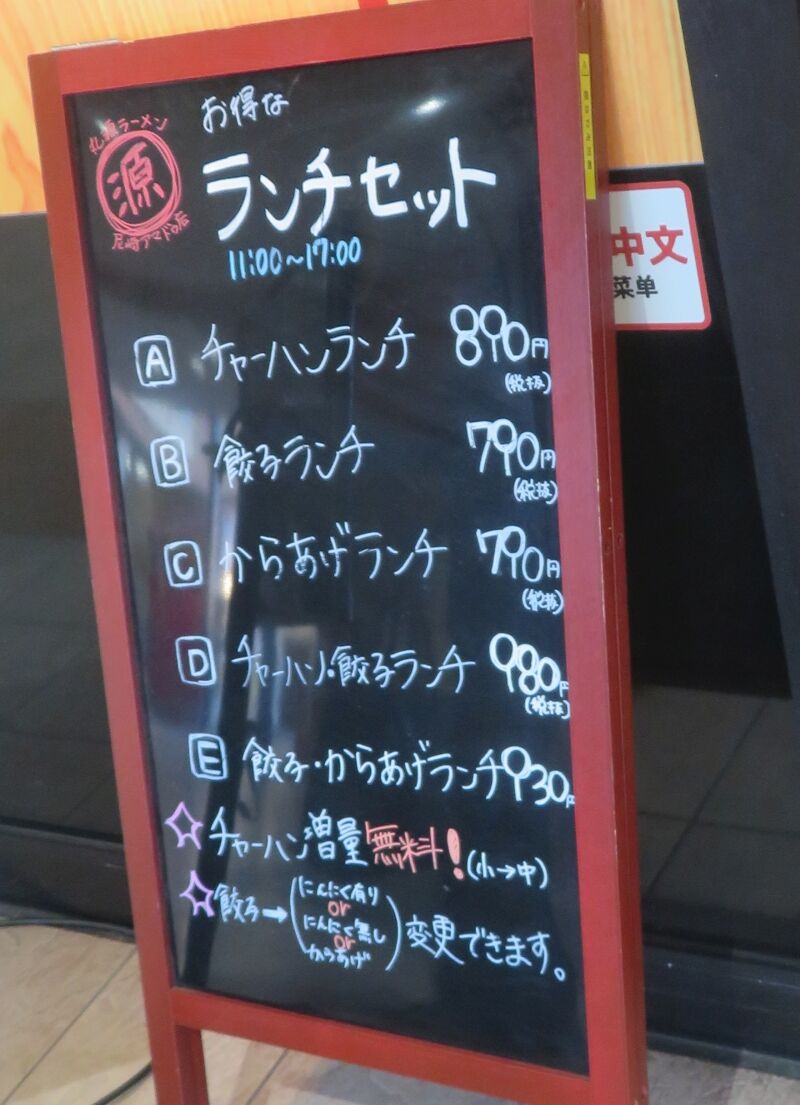 お得な
丸源ラーメン
源
尼崎アマドゥ店
ランチセット
11:00~17:00
A チャーハンランチ 890円
(税抜)
B 餃子ランチ 790円
(税抜)
C からあげランチ 790円
(税抜)
D チャーハン・餃子ランチ 980円
(税抜)
E 餃子・からあげランチ 930円
チャーハン増量無料!(小→中)
餃子→(にんにく有り
or
にんにく無し
or
からあげ)変更できます。
中文
菜单